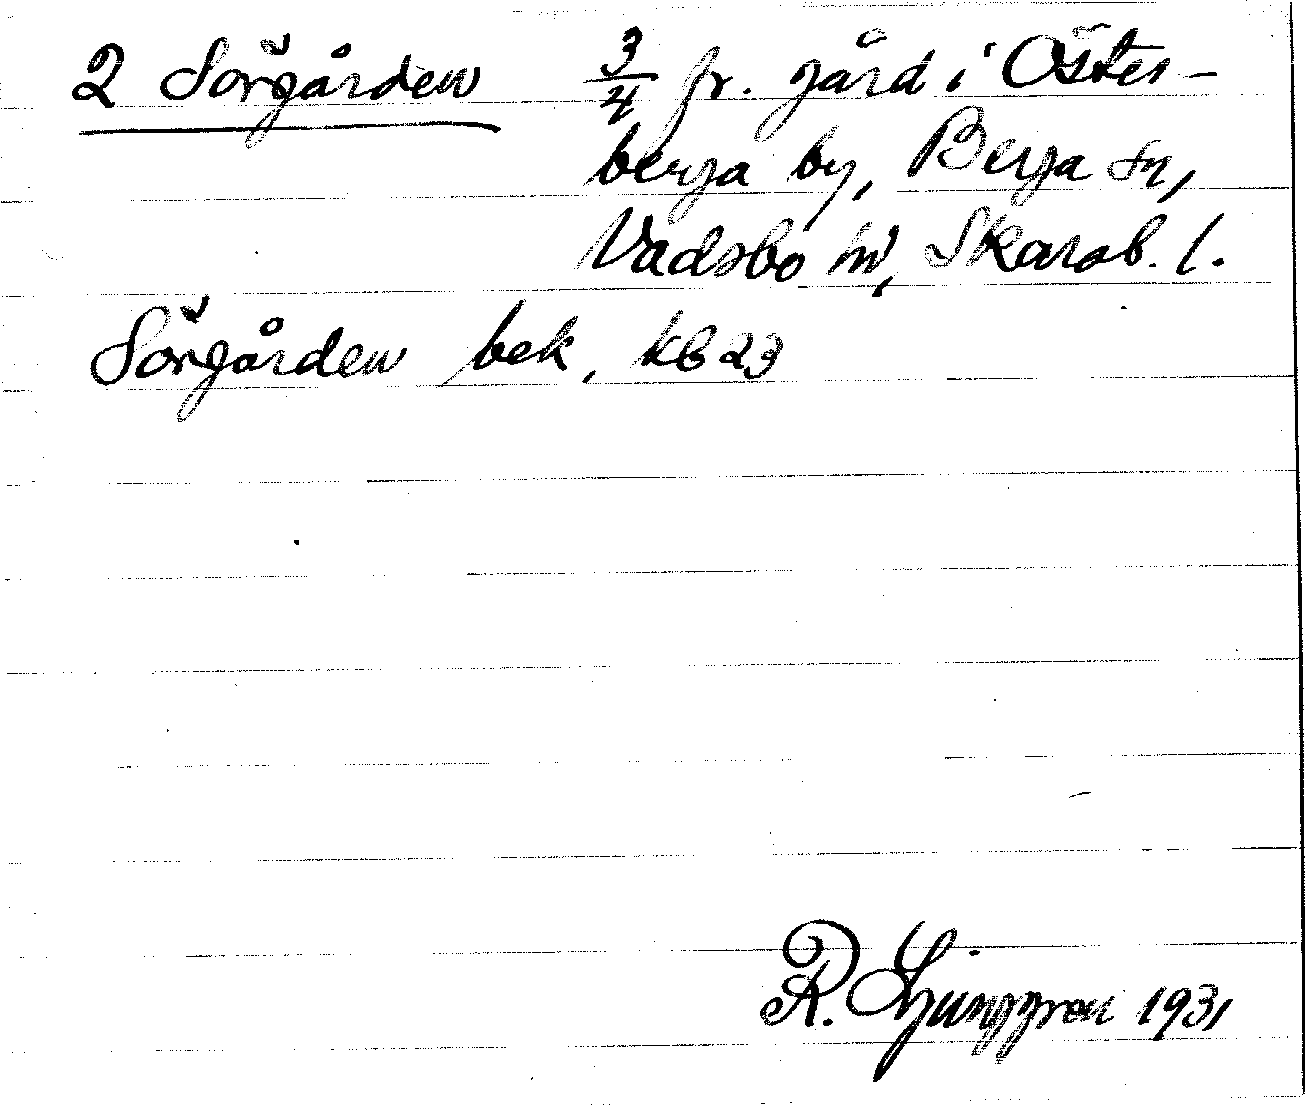 2 Sörgården 3/4 fr. gård i Öster-
berga by, Berga sn,
Vadsbo hd, Skarab. l.
Sörgården bek, kb 23
R. Ljunggren 1931